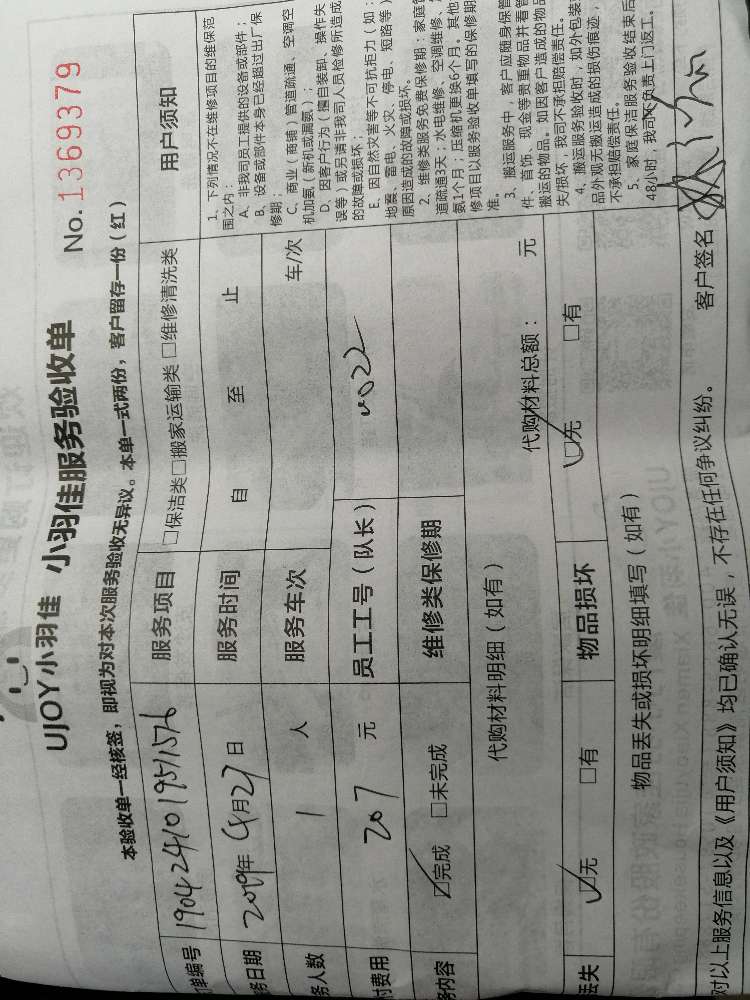 UJOY小羽佳 小羽佳服务验收单
No. 1369379
本验收单一经核签，即视为对本次服务验收无异议。本单一式两份，客户留存一份（红）
单编号 1904241019511576 服务项目 □保洁类□搬家运输类 □维修清洗类 用户须知
务日期 2019年4月27日 服务时间 自 至 止
务人数 1 人 服务车次 车/次
付费用 207 元 员工工号（队长）
务内容 ☑完成 □未完成 维修类保修期
代购材料明细（如有） 代购材料总额： 元
丢失 ☑无 □有 物品损坏 ☑无 □有
物品丢失或损坏明细填写（如有）
1、下列情况不在维修项目的维保范
围之内：
A、非我司员工提供的设备或部件；
B、设备或部件本身已经超过出厂保
修期；
C、商业（商铺）管道疏通、空调空
机加氨（新机或漏氨）；
D、因客户行为（擅自装卸、操作失
误等）或另请非我司人员检修所造成
的故障或损坏；
E、因自然灾害等不可抗拒力（如：
地震、雷电、火灾、停电、短路等）
原因造成的故障或损坏。
2、维修类服务免费保修期：家庭管
道疏通3天；水电维修、空调维修、
氨1个月；压缩机更换6个月。其他
修项目以服务验收单填写的保修期
准。
3、搬运服务中，客户应随身保管
件、首饰、现金等贵重物品并看管
搬运的物品。如因客户造成的物品
失/损坏，我司不承担赔偿责任。
4、搬运服务验收时，如外包装
品外观无搬运造成的损伤痕迹，
不承担赔偿责任。
5、家庭保洁服务验收结束后
48小时，我司不负责上门返工。
对以上服务信息以及《用户须知》均已确认无误，不存在任何争议纠纷。 客户签名